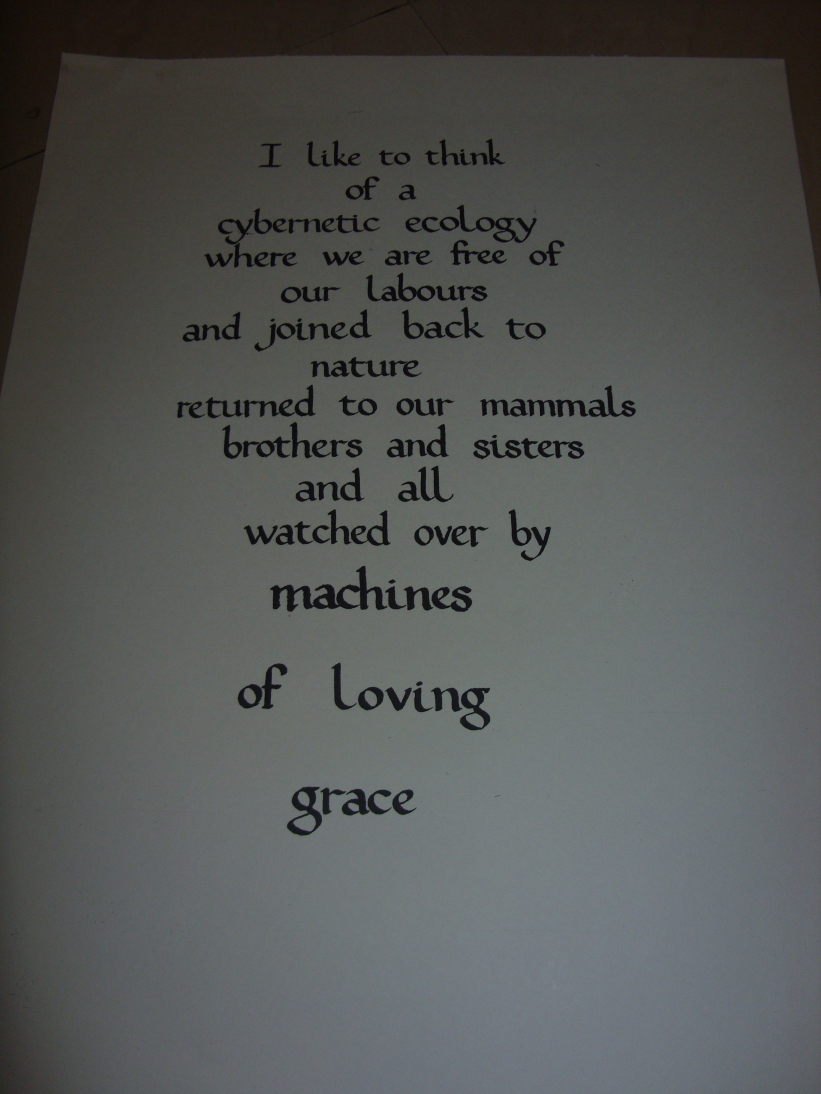 I like to think
of a
cybernetic ecology
where we are free of
our labours
and joined back to
nature
returned to our mammals
brothers and sisters
and all
watched over by
machines
of loving
grace